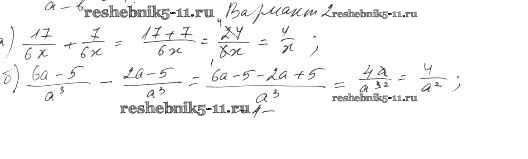 a - b
reshebnik5-11.ru Вариант 2 reshebnik5-11.ru
а) 17/6x + 7/6x = (17+7)/6x = 24/6x = 4/x ;
б) (6a-5)/a³ - (2a-5)/a³ = (6a-5-2a+5)/a³ = 4a/a³² = 4/a² ;
reshebnik5-11.ru reshebnik5-11.ru